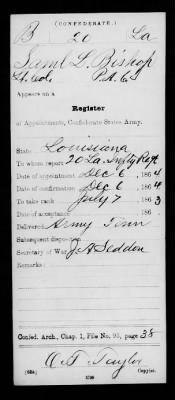 (CONFEDERATE.)
B 20 La
Saml L. Bishop
Lt. Col. P.A.C.S
Appears on a
Register
of Appointments, Confederate States Army.
State Louisiana
To whom report 20 La. Inftry Regt
Date of appointment Dec 6, 1864
Date of confirmation Dec 6, 1864
To take rank July 7, 1863
Date of acceptance 186
Delivered Army Tenn
Subsequent disposition
Secretary of War J A Seddon
Remarks:
Confed. Arch., Chap. 1, File No. 95, page 38
O. T. Taylor
(635) Copyist.